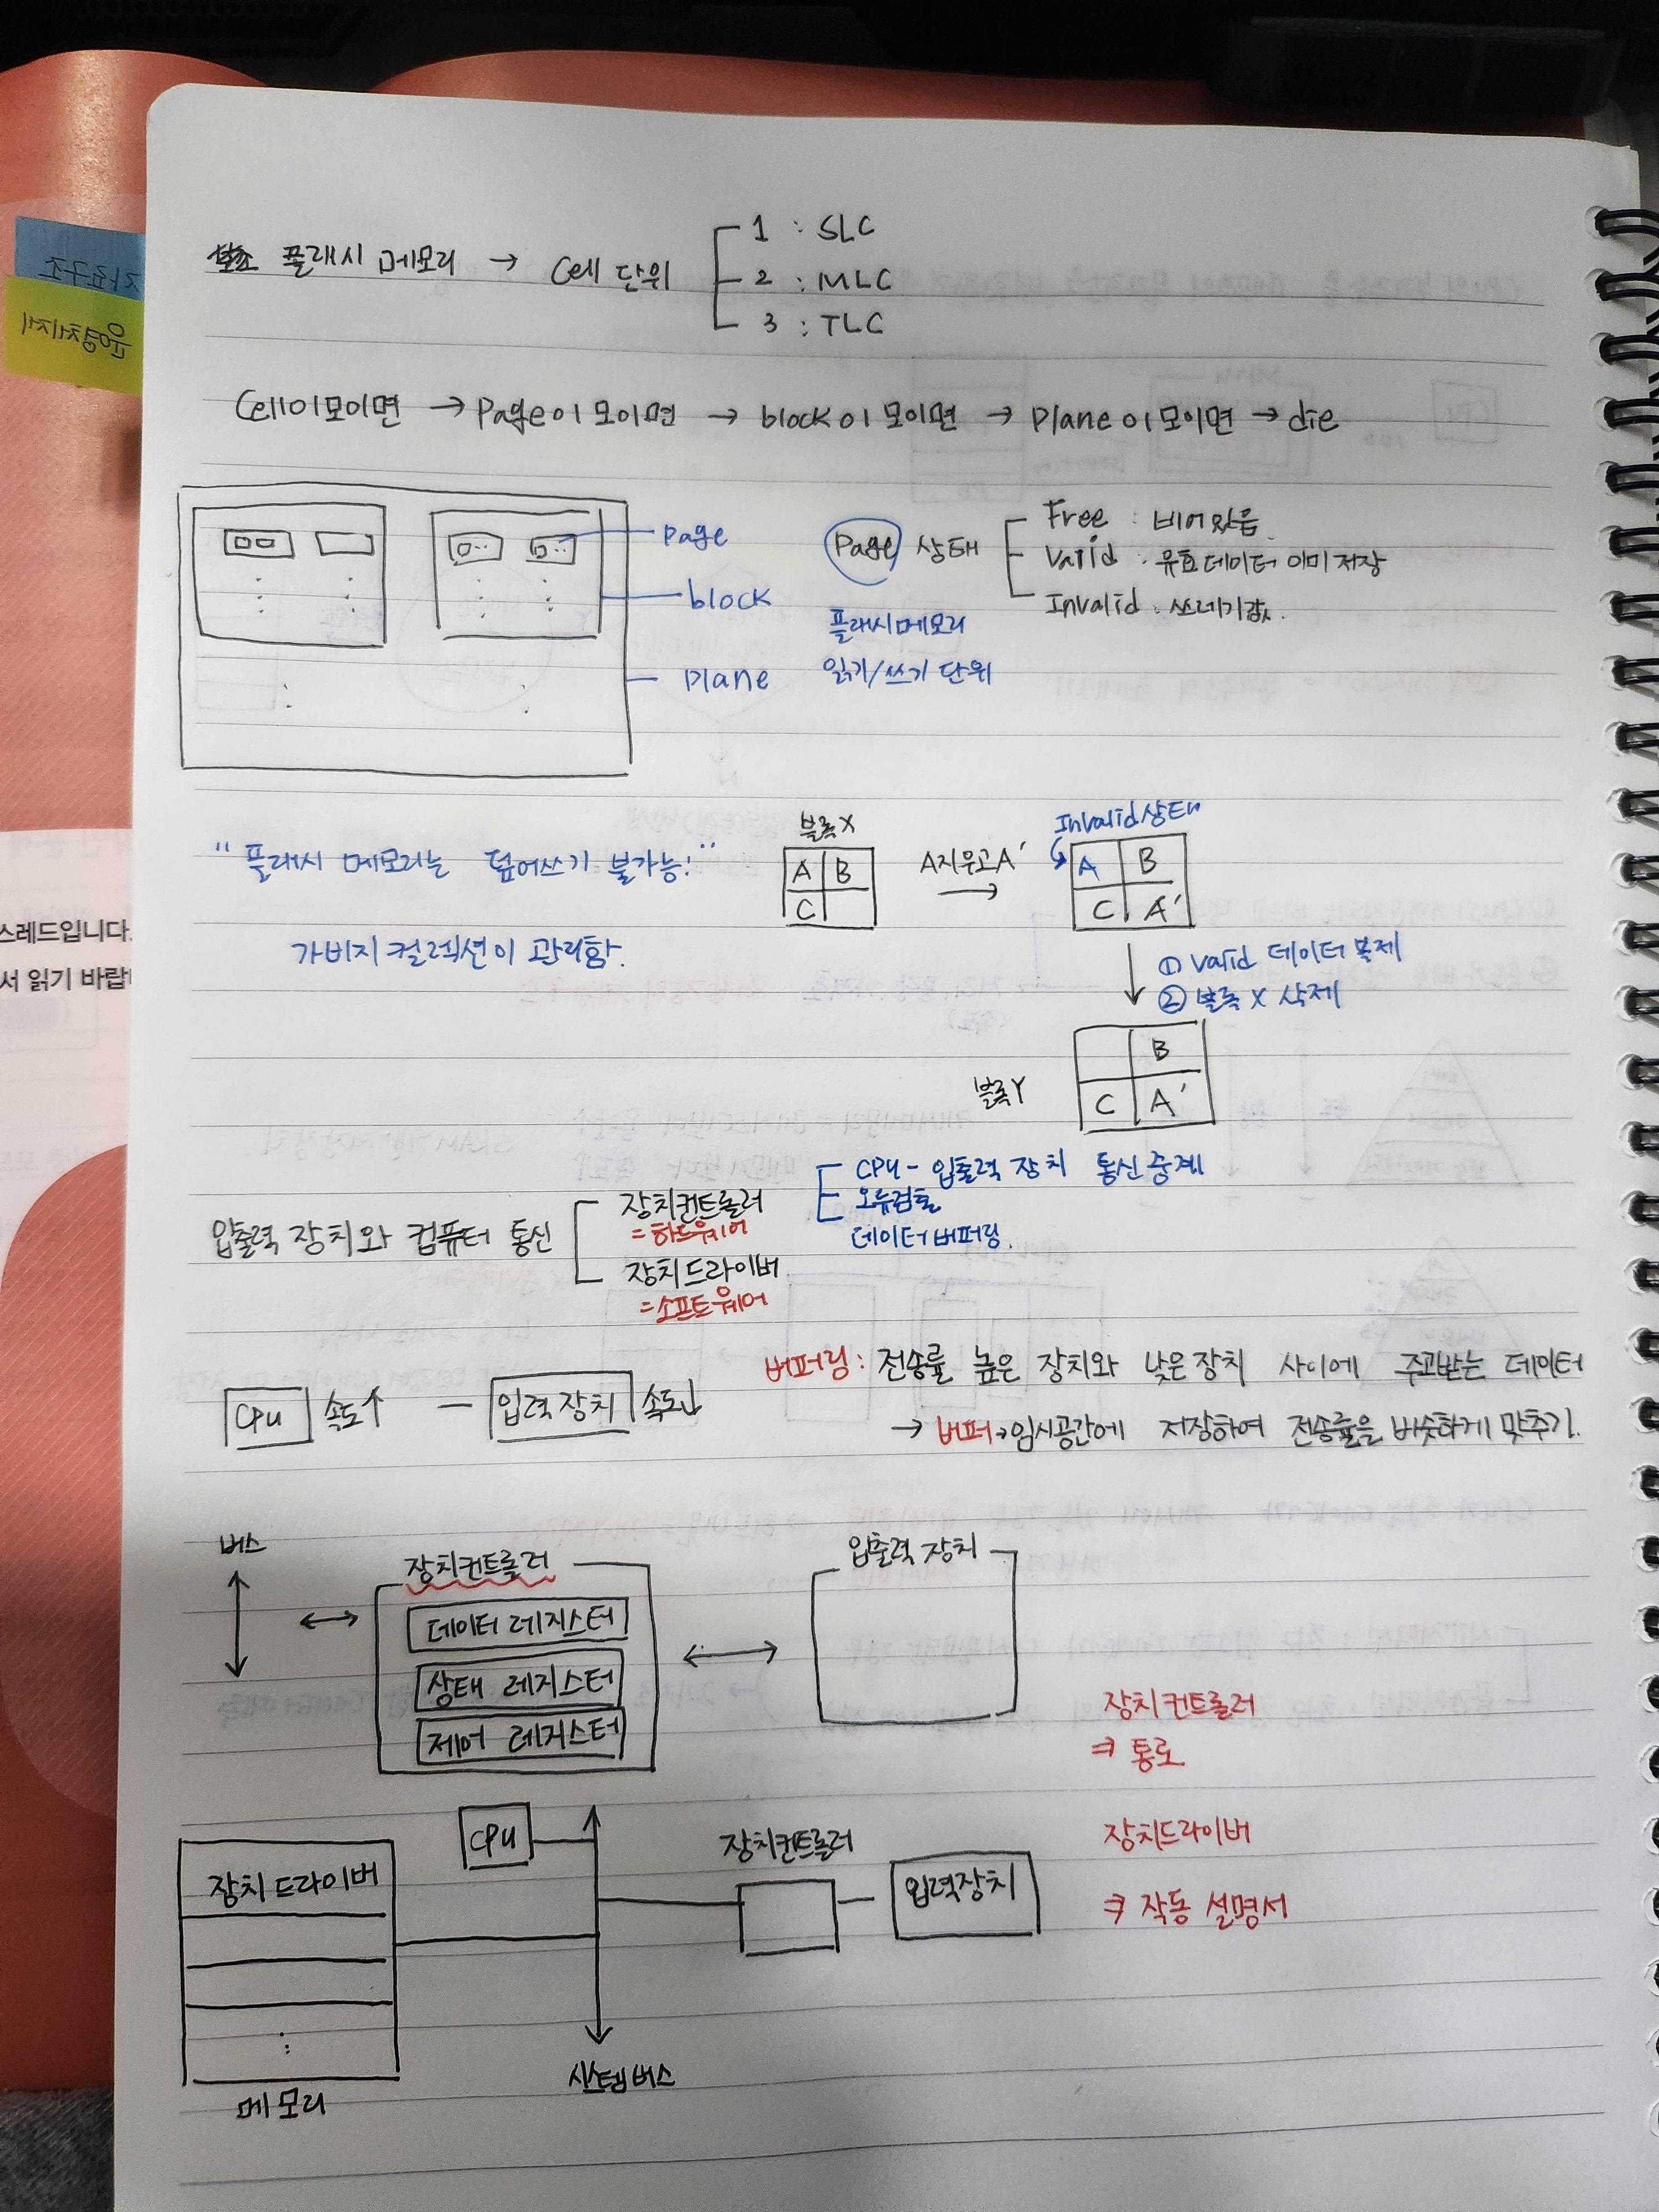 플래시 메모리 → Cell 단위
1 : SLC
2 : MLC
3 : TLC
Cell이모이면 → Page이 모이면 → block이 모이면 → Plane이모이면 → die
Page
block
Plane
Page 상태
Free : 비어있음
Valid : 유효데이터 이미 저장
Invalid : 쓰레기값.
플래시메모리
읽기/쓰기 단위
"플래시 메모리는 덮어쓰기 불가능!"
가비지 컬렉션이 관리함.
블록X
A B
C
A지우고A'
→
Invalid상태
A B
C A'
↓
① Valid 데이터 복제
② 블록 X 삭제
블록Y
B
C A'
입출력 장치와 컴퓨터 통신
장치컨트롤러
=하드웨어
장치드라이버
=소프트웨어
CPU - 입출력 장치 통신중계
오류검출
데이터버퍼링.
CPU 속도↑ — 입력장치 속도↓
버퍼링: 전송률 높은 장치와 낮은장치 사이에 주고받는 데이터
→ 버퍼→임시공간에 저장하여 전송률을 비슷하게 맞추기.
버스
장치컨트롤러
데이터 레지스터
상태 레지스터
제어 레지스터
입출력 장치
장치컨트롤러
⇒ 통로
장치드라이버
⇒ 작동 설명서
장치드라이버
메모리
CPU
시스템버스
장치컨트롤러
입력장치
자료구조
운영체제
스레드입니다.
서 읽기 바랍